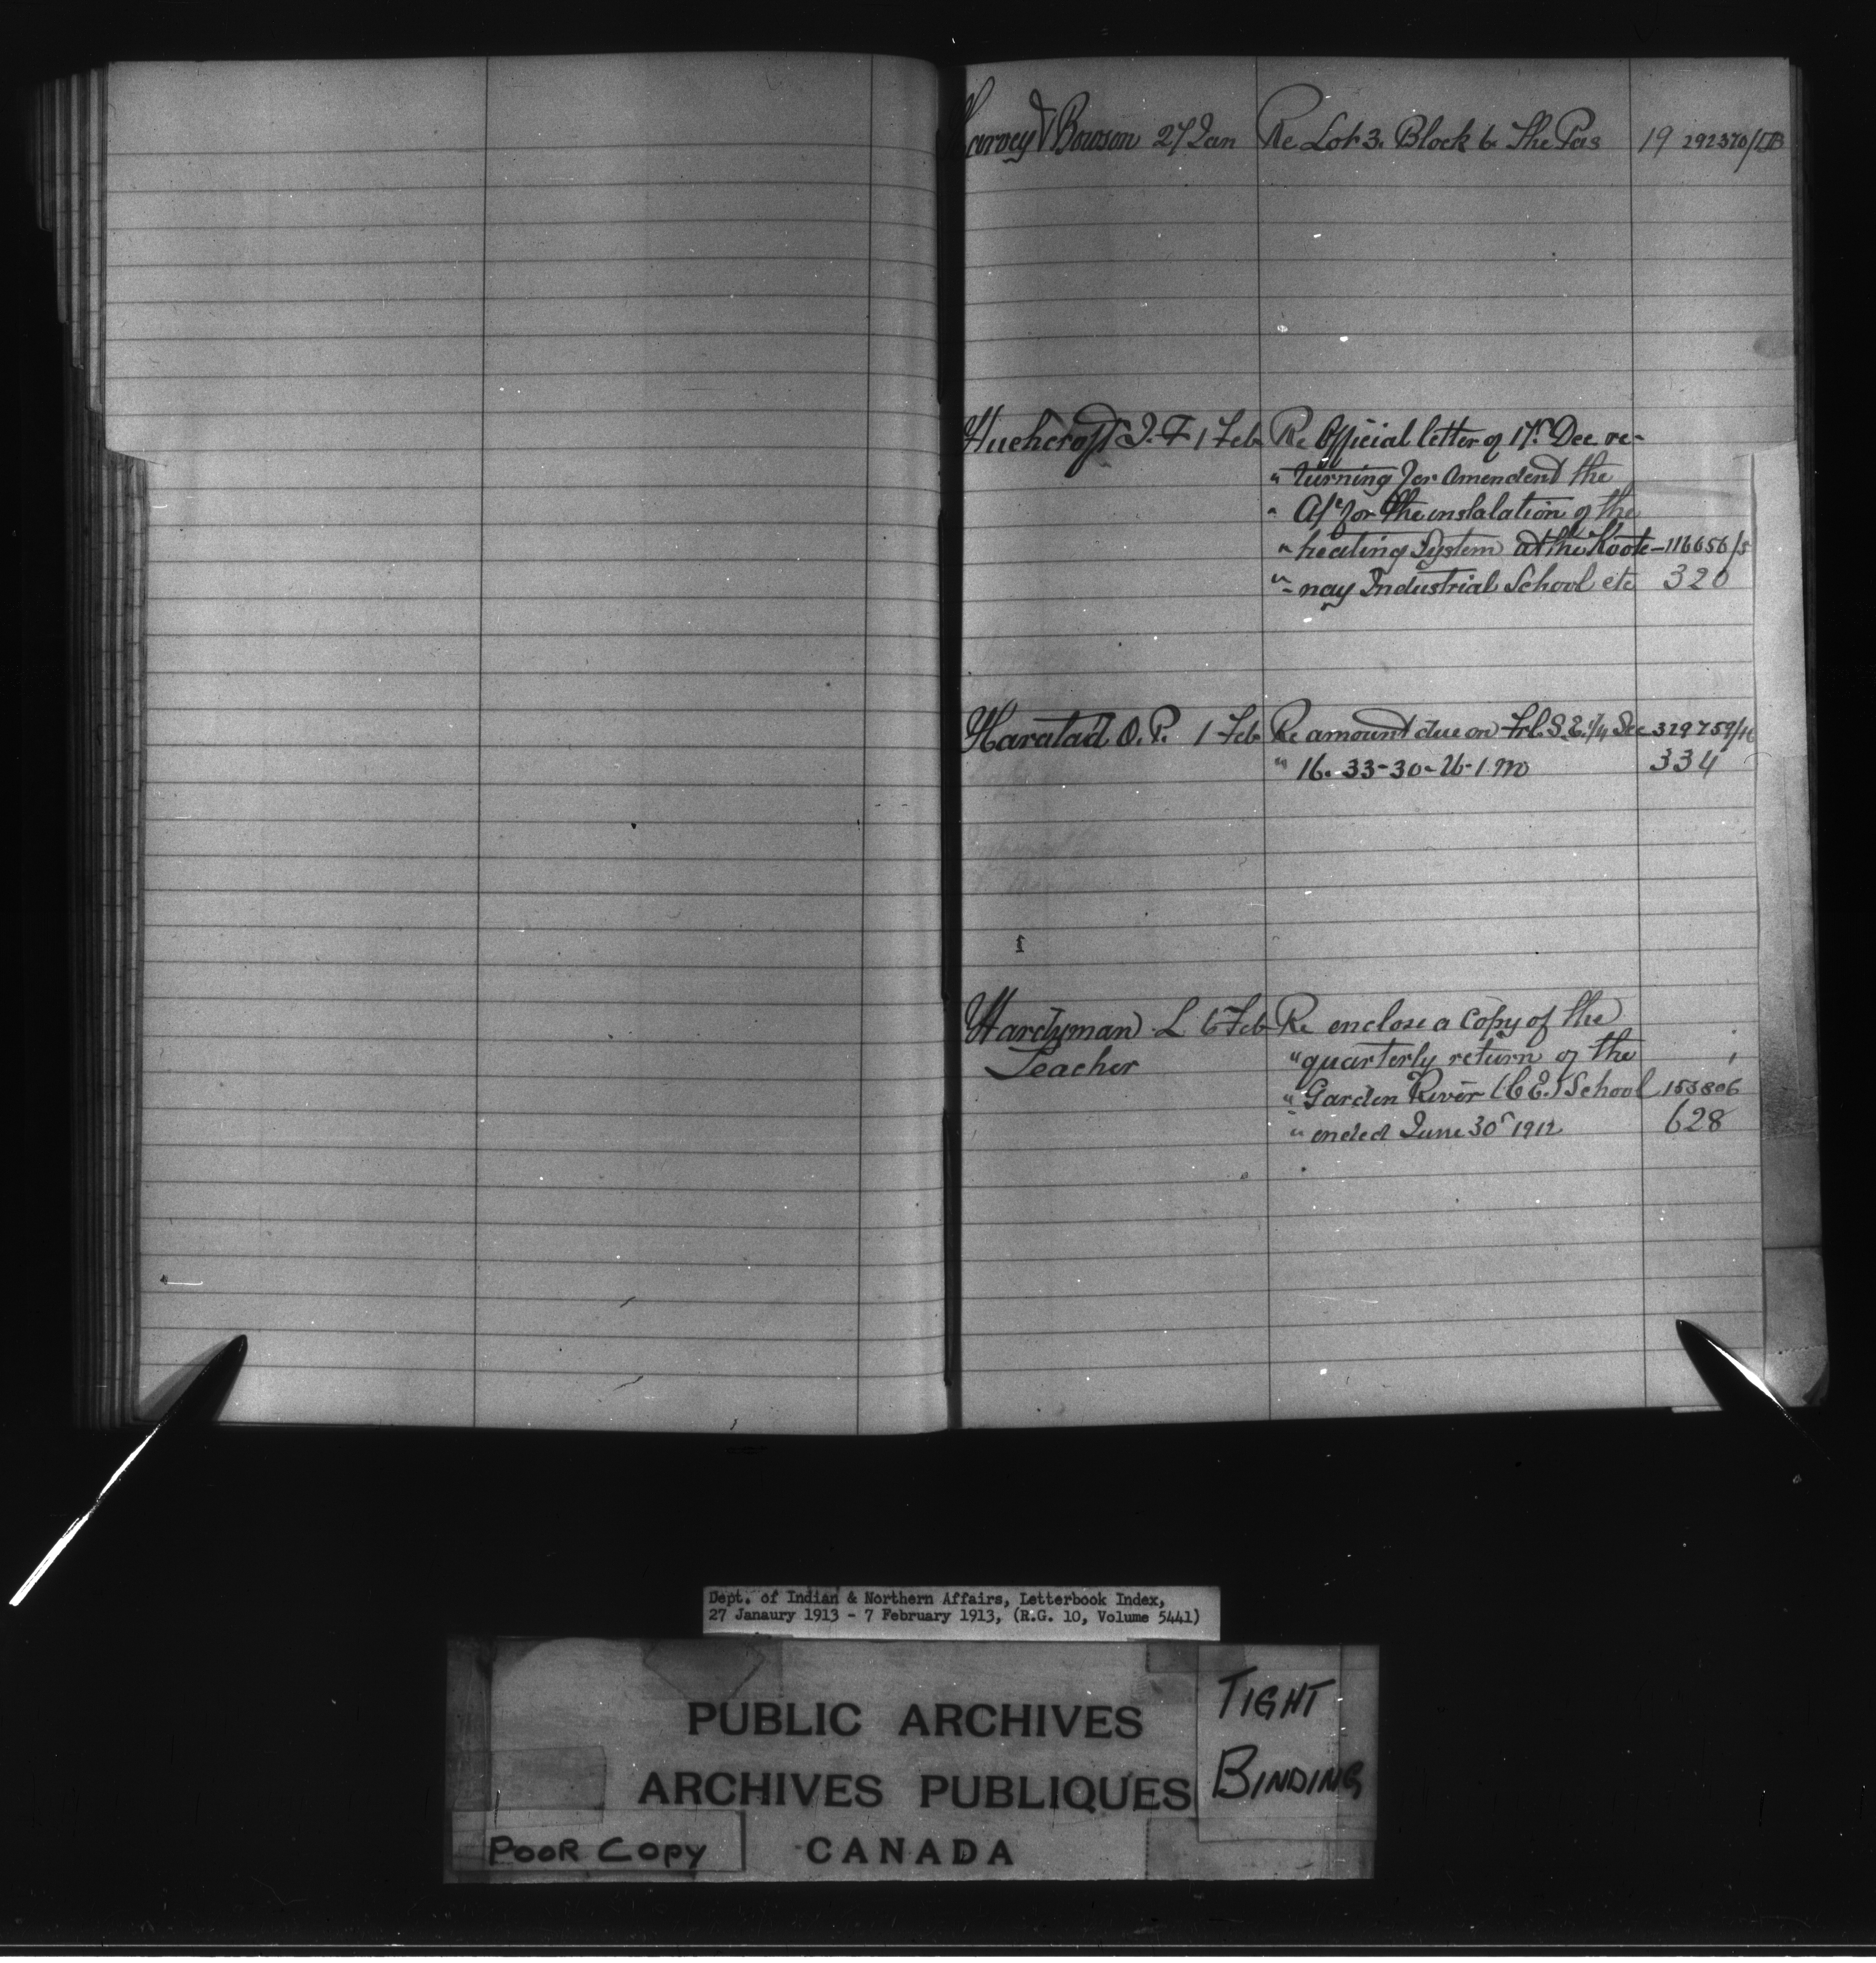 Harvey & Bowson 27 Jan Re Lot 3. Block 6. The Pas 19 292370/
Huchcroft J. F 1 Feb Re Official letter of 17th Dec re-
" turning for Amendend the
" A/c for the instalation of the
" heating System at the Koote- 116656/5
" nay Industrial School etc 320
Haratad O. P. 1 Feb Re amount due on Frl. S.E. 1/4 Sec 329759/
" 16. 33-30-26-1. M 334
Hardyman L 6 Feb Re enclose a Copy of the
Teacher " quarterly return of the
" Garden River (C E.) School 153806
" ended June 30th 1912 628
Dept. of Indian & Northern Affairs, Letterbook Index,
27 Janaury 1913 - 7 February 1913, (R.G. 10, Volume 5441)
PUBLIC ARCHIVES
ARCHIVES PUBLIQUES
CANADA
TIGHT
BINDING
POOR COPY